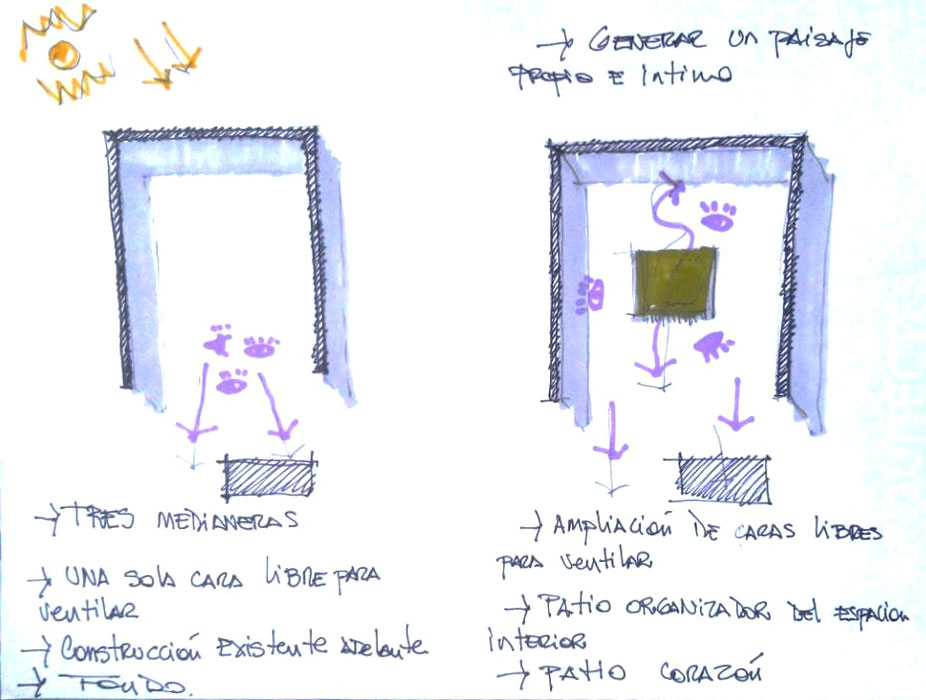 → GENERAR UN PAISAJE
PROPIO E INTIMO
→ TRES MEDIANERAS
→ UNA SOLA CARA LIBRE PARA
VENTILAR
→ CONSTRUCCIÓN EXISTENTE ADELANTE
→ FONDO.
→ AMPLIACIÓN DE CARAS LIBRES
PARA VENTILAR
→ PATIO ORGANIZADOR DEL ESPACION
INTERIOR
→ PATIO CORAZÓN